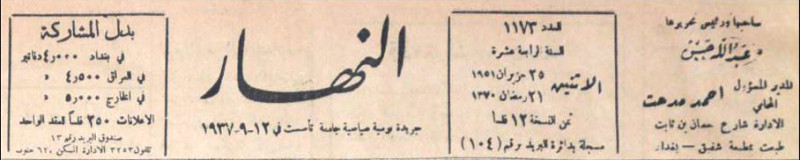 صاحبها ورئيس تحريرها
عبد الله حسن
المدير المسؤول
المحامي
احمد مدحت
الادارة شارع حسان بن ثابت
طبعت بمطبعة شفيق - بغداد
العدد ١١٧٣
السنة الرابعة عشرة
الاثنين
٢٥ حزيران ١٩٥١
٢١ رمضان ١٣٧٠
ثمن النسخة ١٢ فلسا
مسجلة بدائرة البريد برقم (١٠٤)
النهار
جريدة يومية سياسية جامعة تأسست في ١٢-٩-١٩٣٧
بدل المشاركة
في بغداد ٤٫٠٠٠ دنانير
في العراق ٤٫٥٠٠ «
في الخارج ٥٫٠٠٠ «
الاعلانات ٢٥٠ فلساً للعقد الواحد
صندوق البريد رقم ١٣
تلفون ٣٢٥٣ الادارة السكن ٦٢٠ جنوب